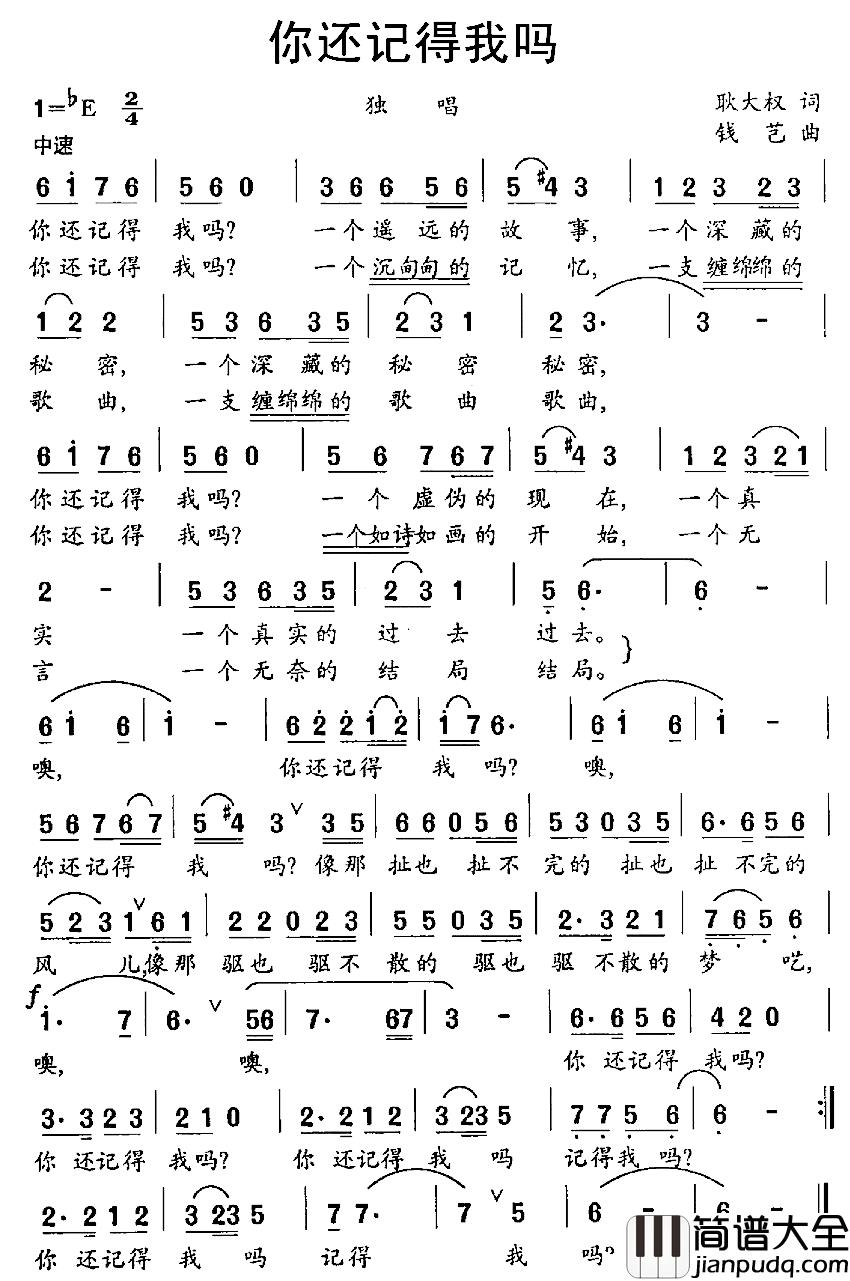 你还记得我吗
1=♭E 2/4 独 唱 耿大权 词
中速 钱 艺 曲
6 i 7 6 | 5 6 0 | 3 6 6 5 6 | 5 #4 3 | 1 2 3 2 3 |
你还记得 我吗? 一个遥远的 故 事, 一个深藏的
你还记得 我吗? 一个沉甸甸的 记 忆, 一支缠绵绵的
1 2 2 | 5 3 6 3 5 | 2 3 1 | 2 3· | 3 - |
秘 密, 一个深藏的 秘密 秘密,
歌 曲, 一支缠绵绵的 歌曲 歌曲,
6 i 7 6 | 5 6 0 | 5 6 7 6 7 | 5 #4 3 | 1 2 3 2 1 |
你还记得 我吗? 一个虚伪的 现 在, 一个真
你还记得 我吗? 一个如诗如画的 开 始, 一个无
2 - | 5 3 6 3 5 | 2 3 1 | 5 6· | 6 - |
实 一个真实的 过去 过去。
言 一个无奈的 结局 结局。
6 i 6 | i - | 6 2 2 i 2 | i 7 6· | 6 i 6 | i - |
噢, 你还记得 我吗? 噢,
5 6 7 6 7 | 5 #4 3 ∨ 3 5 | 6 6 0 5 5 6 | 5 3 0 3 3 5 | 6· 6 5 6 |
你还记得 我 吗?像那 扯也 扯不 完的 扯也 扯 不完的
5 2 3 1 ∨ 6 1 | 2 2 0 2 2 3 | 5 5 0 5 3 5 | 2· 3 2 1 | 7 6 5 6 |
风 儿,像那 驱也 驱不 散的 驱也 驱 不散的 梦 呓,
f
i· 7 | 6· ∨ 5 6 | 7· 6 7 | 3 - | 6· 6 5 6 | 4 2 0 |
噢, 噢, 你 还记得 我吗?
3· 3 2 3 | 2 1 0 | 2· 2 1 2 | 3 2 3 5 | 7 7 5 6 | 6 - :‖
你 还记得 我吗? 你 还记得 我 吗 记得我吗?
2· 2 1 2 | 3 2 3 5 | 7 7· | 7 ∨ 5 | 6 - | 6 - ‖
你 还记得 我 吗 记得 我 吗?
简谱大全
jianpudq.com